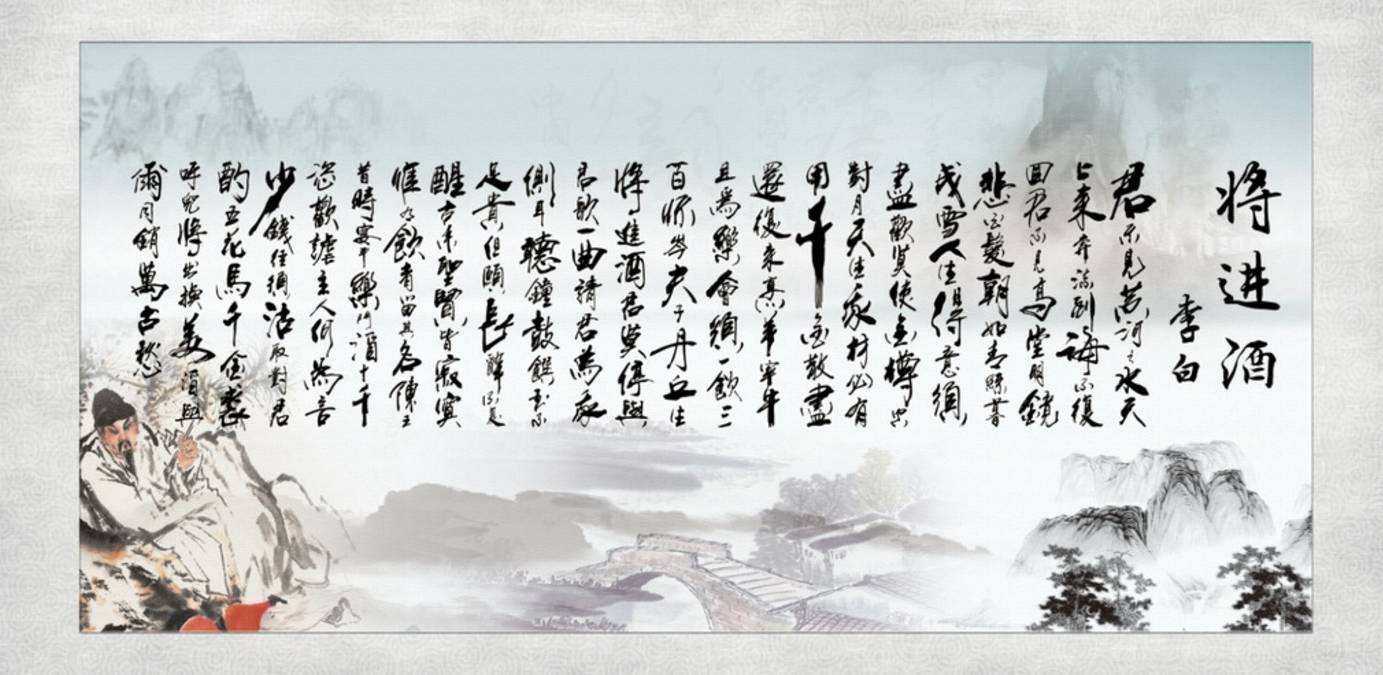 将进酒
李白
君不見黃河之水天
上來奔流到海不復
回君不見高堂明鏡
悲白髮朝如青絲暮
成雪人生得意須
盡歡莫使金樽空
對月天生我材必有
用千金散盡
還復來烹羊宰牛
且為樂會須一飲三
百杯岑夫子丹丘生
將進酒君莫停與
君歌一曲請君為我
側耳聽鐘鼓饌玉不
足貴但願長醉不復
醒古來聖賢皆寂寞
惟有飲者留其名陳王
昔時宴平樂斗酒十千
恣歡謔主人何為言
少錢徑須沽取對君
酌五花馬千金裘
呼兒將出換美酒與
爾同銷萬古愁